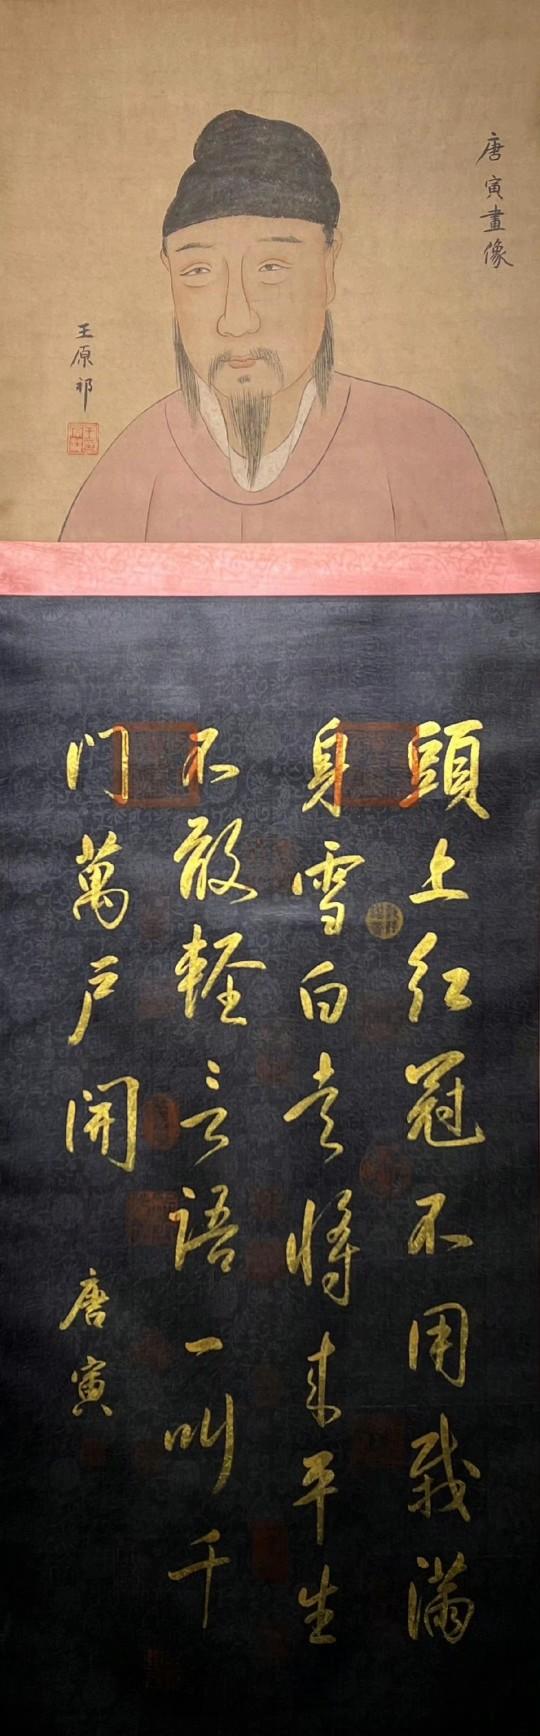 唐寅畫像
王原祁
頭上紅冠不用裁滿
身雪白走將来平生
不敢輕言語一叫千
門萬戶開
唐寅